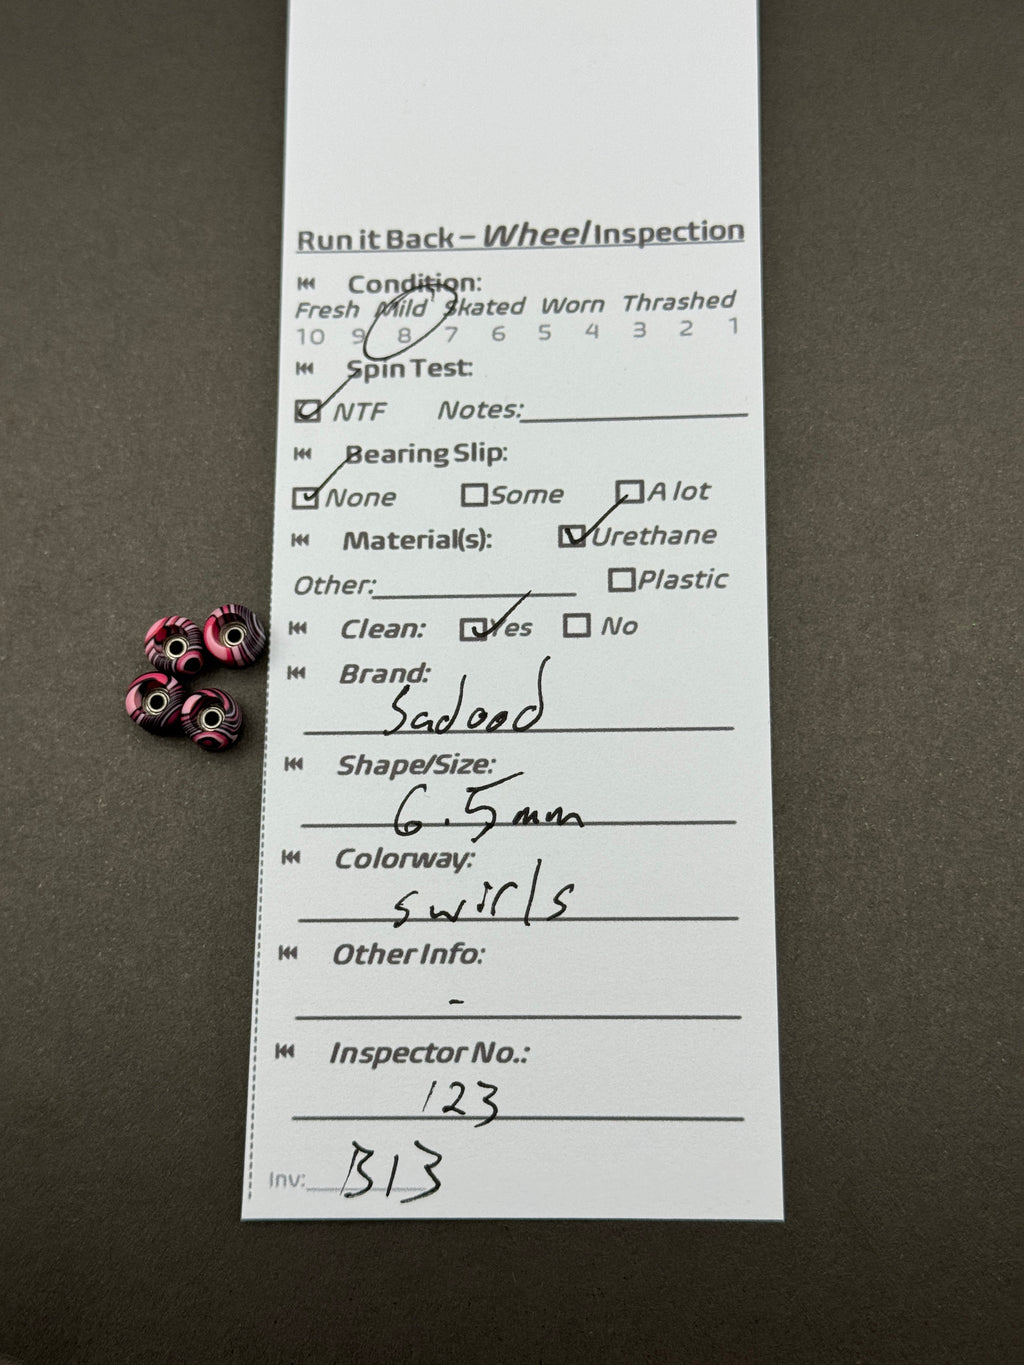 Run it Back – Wheel Inspection
Condition:
Fresh Mild Skated Worn Thrashed
10 9 8 7 6 5 4 3 2 1
Spin Test:
NTF Notes:
Bearing Slip:
None Some A lot
Material(s): Urethane
Other: Plastic
Clean: Yes No
Brand:
Sadood
Shape/Size:
6.5mm
Colorway:
swirls
Other Info:
-
Inspector No.:
123
Inv: B13